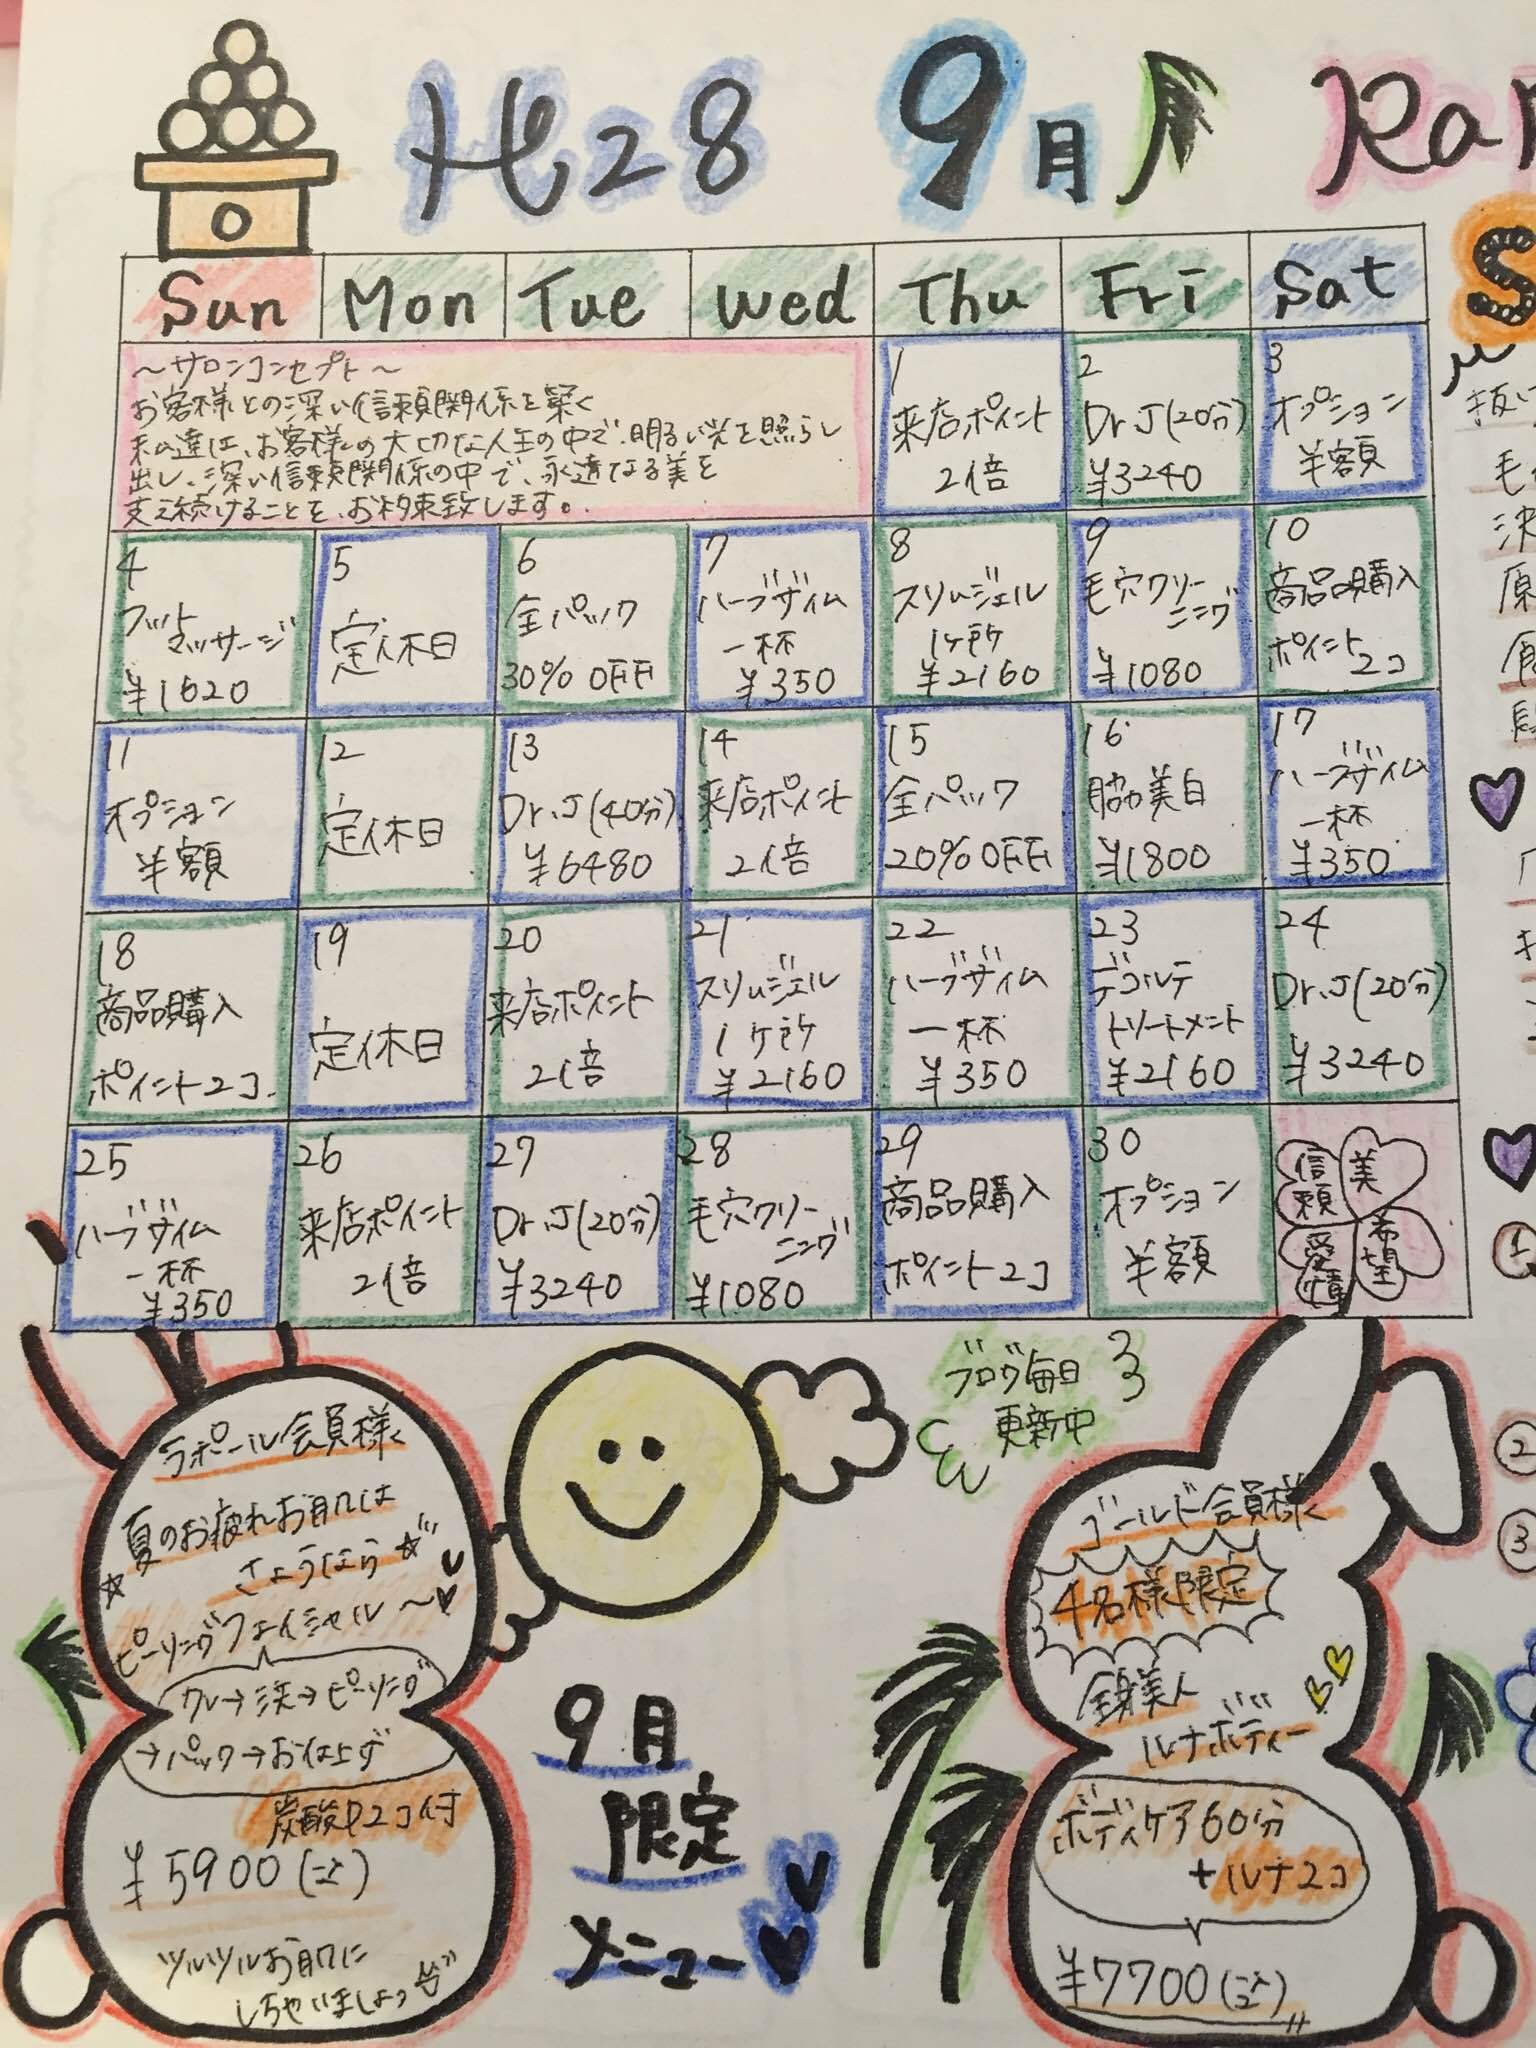 H28 9月
Sun Mon Tue Wed Thu Fri Sat
～サロンコンセプト～
お客様との深い信頼関係を築く
私達は、お客様の大切な人生の中で、明るい光を照らし
出し、深い信頼関係の中で、永遠なる美を
支え続けることを、お約束致します。
1
来店ポイント
2倍
2
Dr.J(20分)
¥3240
3
オプション
半額
4
フット
マッサージ
¥1620
5
定休日
6
全パック
30%OFF
7
ハーブザイム
一杯
¥350
8
スリムジェル
1ヶ所
¥2160
9
毛穴クリー
ニング
¥1080
10
商品購入
ポイント
2コ
11
オプション
半額
12
定休日
13
Dr.J(40分)
¥6480
14
来店ポイント
2倍
15
全パック
20%OFF
16
脇美白
¥1800
17
ハーブザイム
一杯
¥350
18
商品購入
ポイント2コ
19
定休日
20
来店ポイント
2倍
21
スリムジェル
1ヶ所
¥2160
22
ハーブザイム
一杯
¥350
23
デコルテ
トリートメント
¥2160
24
Dr.J(20分)
¥3240
25
ハーブザイム
一杯
¥350
26
来店ポイント
2倍
27
Dr.J(20分)
¥3240
28
毛穴クリー
ニング
¥1080
29
商品購入
ポイント2コ
30
オプション
半額
信頼
美
愛情
希望
ブログ毎日
更新中
ラポール会員様
夏のお疲れお肌は
さようなら
ピーリングフェイシャル～
クレ→深→ピーリング
→パック→お仕上げ
炭酸P2コ付
¥5900(込)
ツルツルお肌に
しちゃいましょっ
9月
限定
メニュー
ゴールド会員様
4名様限定
全身美人
ルナボディー
ボディケア60分
+ルナ2コ
¥7700(込)
①
②
③